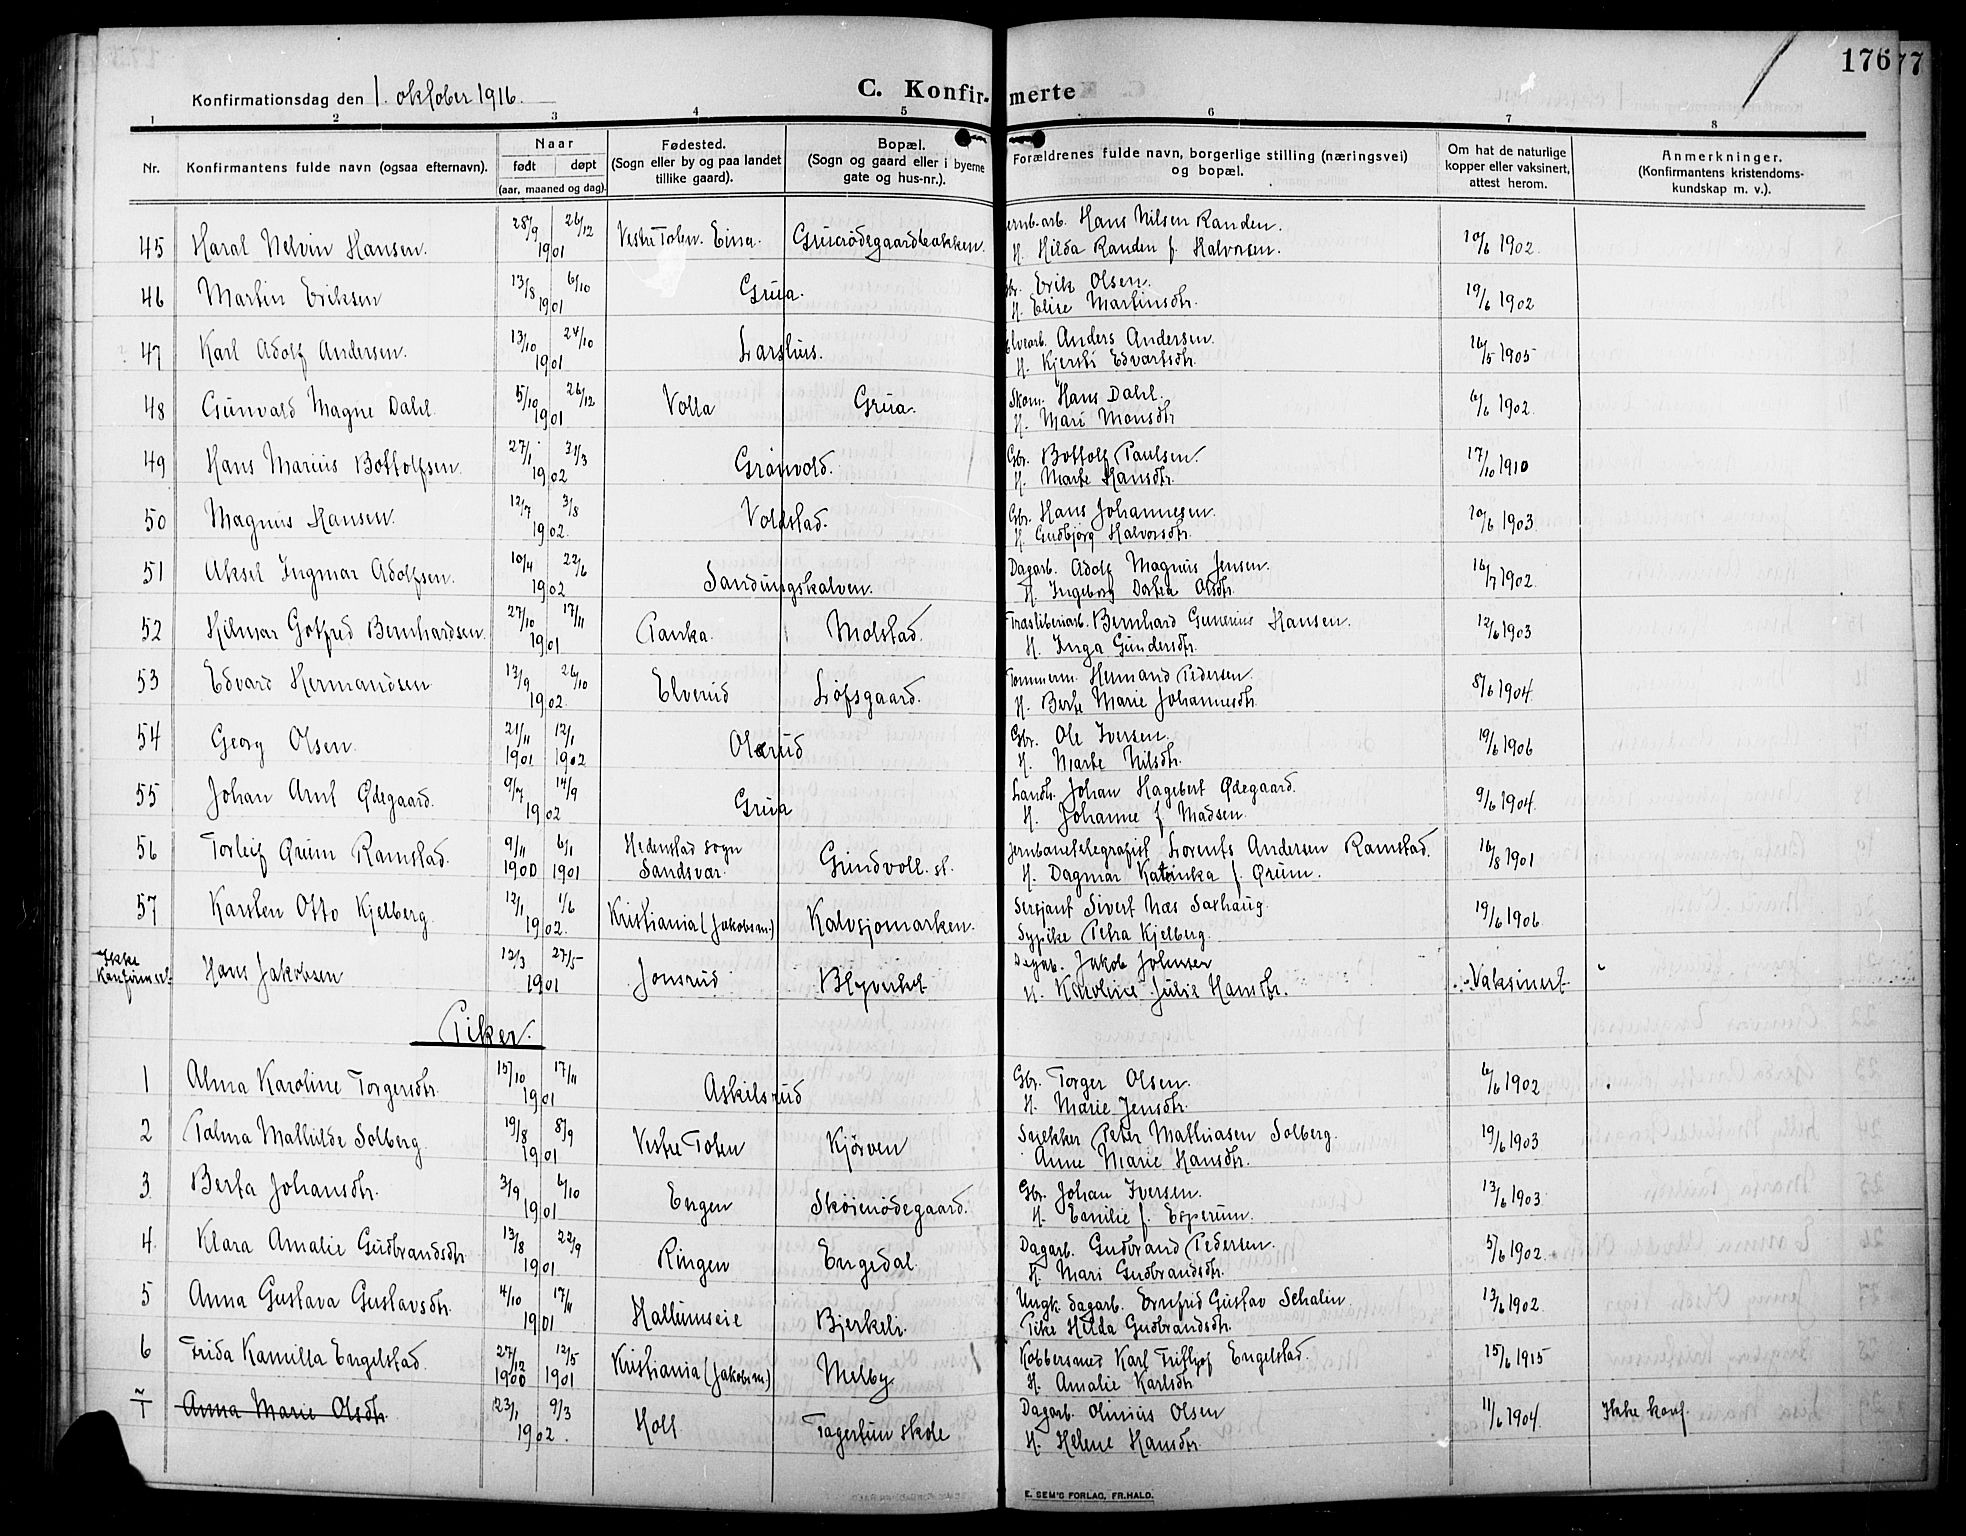 176
77
Konfirmationsdag den 1. oktober 1916.
C. Konfirmerte
1 2 3 4 5 6 7 8
Nr.
Konfirmantens fulde navn (ogsaa efternavn).
Naar
født døpt
(aar, maaned og dag).
Fødested.
(Sogn eller by og paa landet
tillike gaard).
Bopæl.
(Sogn og gaard eller i byerne
gate og hus-nr.).
Forældrenes fulde navn, borgerlige stilling (næringsvei)
og bopæl.
Om hat de naturlige
kopper eller vaksinert,
attest herom.
Anmerkninger.
(Konfirmantens kristendoms-
kundskap m. v.).
45 Haral Melvin Hansen. 28/9 26/12 1901 Vestre Toten. Eina. Gruaødegaardbakken. Jernb.arb. Hans Nilsen Randen.
H. Hilda Randen f. Halvorsen. 10/6 1902.
46 Martin Eriksen 13/8 6/10 1901 Grua. Gbr. Erik Olsen.
H. Elise Martinsdtr. 19/6 1902
47 Karl Adolf Andersen. 13/10 24/10 1901 Larshus. Elvearb. Anders Andersen.
H. Kjersti Edvartsdtr. 16/5 1905
48 Gunvald Magne Dahl. 5/10 26/12 1901 Volla Grua. Skom. Hans Dahl.
H. Mari Monsdtr 6/6 1902.
49 Hans Marius Bottolfsen. 27/1 31/3 1902 Grönvold. Gbr. Bottolf Paulsen.
H. Marte Hansdtr. 17/10 1910
50 Magnus Hansen. 12/7 3/8 1902. Voldstad. Gbr. Hans Johannesen.
H. Gudbjörg Halvorsdtr. 10/6 1903.
51 Aksel Ingmar Adolfsen. 10/4 22/6 1902 Sandungskalven. Dagarb. Adolf Magnus Jensen.
H. Ingeborg Dortea Olsdtr. 16/7 1902.
52 Hilmar Gotfred Bernhardsen. 27/10 17/11 1901 Tanka. Molstad. Træsliberiarb. Bernhard Gunerius Hansen.
H. Inga Gundersdtr. 12/6 1903
53 Edvard Hermandsen 13/9 26/10 1902. Elverud Løfsgaard. Tømmerm. Hermand Pedersen.
H. Berte Marie Johannesdtr. 8/6 1904.
54 Georg Olsen. 21/11 1901 12/1 1902 Olerud Gbr. Ole Iversen.
H. Marte Nilsdtr. 19/6 1906
55 Johan Arnt Ødegaard. 9/7 14/9 1902 Grua Landh. Johan Hagebert Ødegaard.
H. Johanne f. Madsen. 9/6 1904.
56 Torleif Ørum Ramstad. 9/11 1900 6/1 1901 Hedenstad sogn
Sandsvær. Grindvoll. st. Jernbanetelegrafist Lorents Andersen Ramstad.
H. Dagmar Katinka f. Ørum. 16/8 1901
57 Karsten Otto Kjelberg. 12/1 1/6 1902. Kristiania (Jakobs m.) Kalvsjømarken. Sersjant Sivert Næs Saxhaug.
Sypike Petra Kjelberg. 19/6 1906.
Ikke
Konfirmert. Hans Jakobsen 12/3 27/5 1901 Jonsrud Blyverket Dagarb. Jakob Johnsen
H. Karoline Julie Hansdtr. Vaksinert
Piker.
1 Alma Karoline Torgersdtr. 15/10 17/11 1901 Askilsrud Gbr. Torger Olsen.
H. Marie Jensdtr. 6/6 1902
2 Palma Mathilde Solberg. 19/8 8/9 1901 Vestre Toten Kjørven Snekker Peter Mathiasen Solberg.
Anne Marie Hansdtr. 19/6 1903
3 Berta Johansdtr. 3/9 6/10 1901 Engen Skøienødegaard. Gbr. Johan Iversen.
H. Emilie f. Esperum. 13/6 1903
4. Klara Amalie Gudbrandsdtr 13/8 22/9 1901 Ringen Engedal. Dagarb. Gudbrand Pedersen.
H. Mari Gudbrandsdtr. 5/6 1902.
5 Anna Gustava Gustavsdtr. 4/10 17/11 1901 Hallumseie Bjerkeli. Ungk. dagarb. Ernfrid Gustav Schalin
Pike Hilda Gudbrandsdtr. 13/6 1902.
6 Frida Kamilla Engelstad. 27/12 1900 12/5 1901 Kristiania (Jakobs m.) Melby Kobbersmed Karl Fritjof Engelstad.
H. Amalie Karlsdtr 15/6 1915
Anna Marie Olsdtr. 23/1 9/3 1902. Holt Tagertun skole Dagarb. Olinius Olsen
H. Helene Hansdtr. 11/6 1904. Ikke konf.
E. SEM'S FORLAG, FR.HALD.